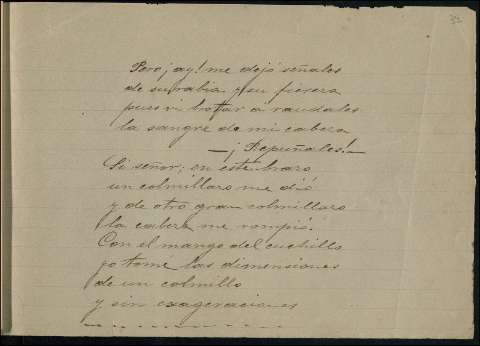 Pero ¡ay! me dejó señales
de su rabia y su fiereza
pues vi brotar a raudales
la sangre de mi cabeza
— ¡Repuñales! —
Si señor; en este brazo
un colmillazo me dió
y de otro gran colmillazo
la cabeza me rompió.
Con el mango del cuchillo
yo tomé las dimensiones
de un colmillo
y sin exageraciones